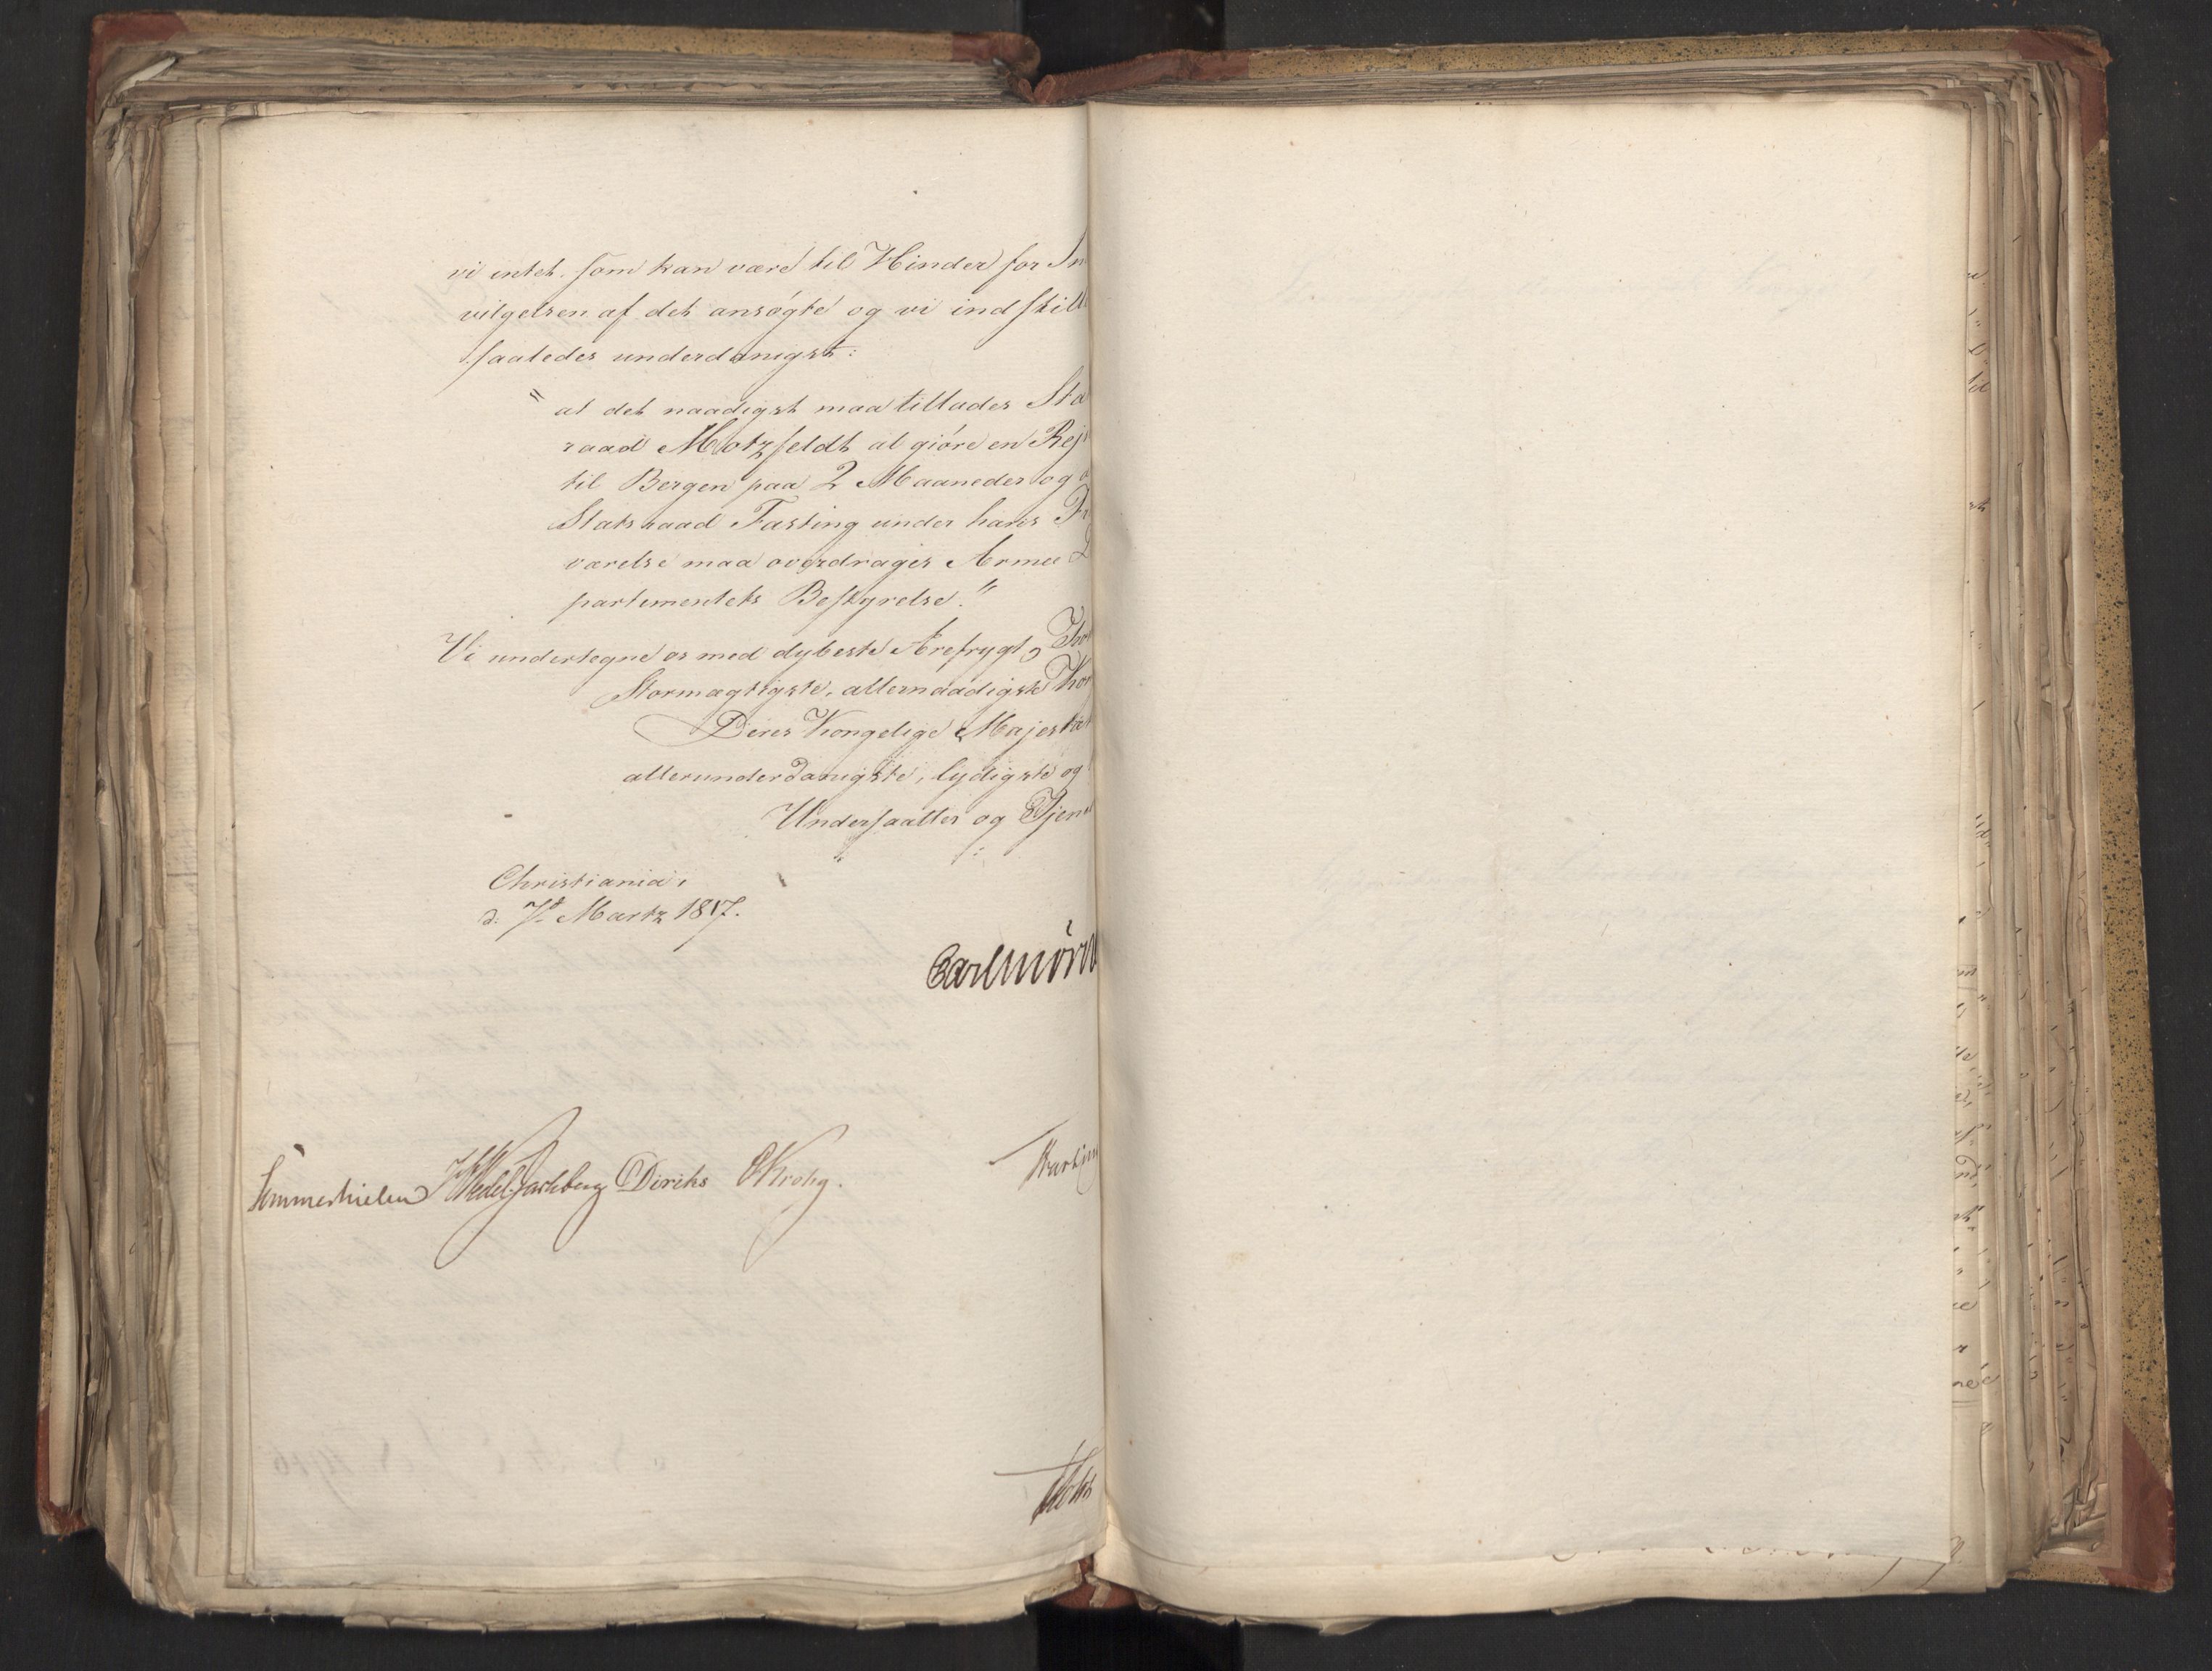 vi intet som kan være til Hinder for In
vilgelsen af det ansøgte og vi indstill
saaledes underdanigst:
" at det naadigst maa tillades Sta
raad Motzfeldt at giøre en Rejs
til Bergen paa 2 Maaneder og a
Statsraad Fasting under hans Fr
værelse maa overdrages Armee D
partementets Bestyrelse."
Vi undertegne os med dybeste Ærefrygt,
Stormægtigste, allernaadigste Kon
Deres Kongelige Majestæt
allerunderdanigste, lydigste og
Undersaatter og Tjene
Christiania,
d: 7de Martz 1817.
Carl Mörn
Sommerhielm HWedel Jarlsberg Diriks CKrohg.